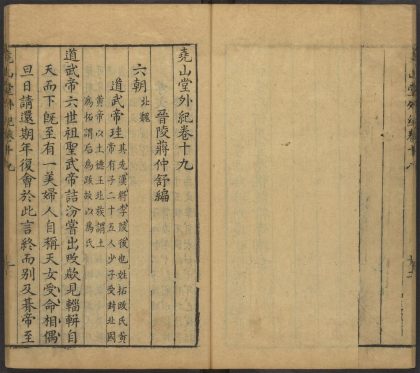 堯山堂外紀卷十九
晉陵蔣仲舒編
六朝 北魏
道武帝珪 其先漢將李陵後也姓拓跋氏黃
帝有子二十五人少子受封北國
黃帝以土德王北俗謂土
爲拓謂后爲跋故以爲氏
道武帝六世祖聖武帝詰汾嘗出畋歘見輜軿自
天而下旣至有一美婦人自稱天女受命相偶
旦日請還期年復會於此言終而別及朞帝至
堯山堂外紀卷十九